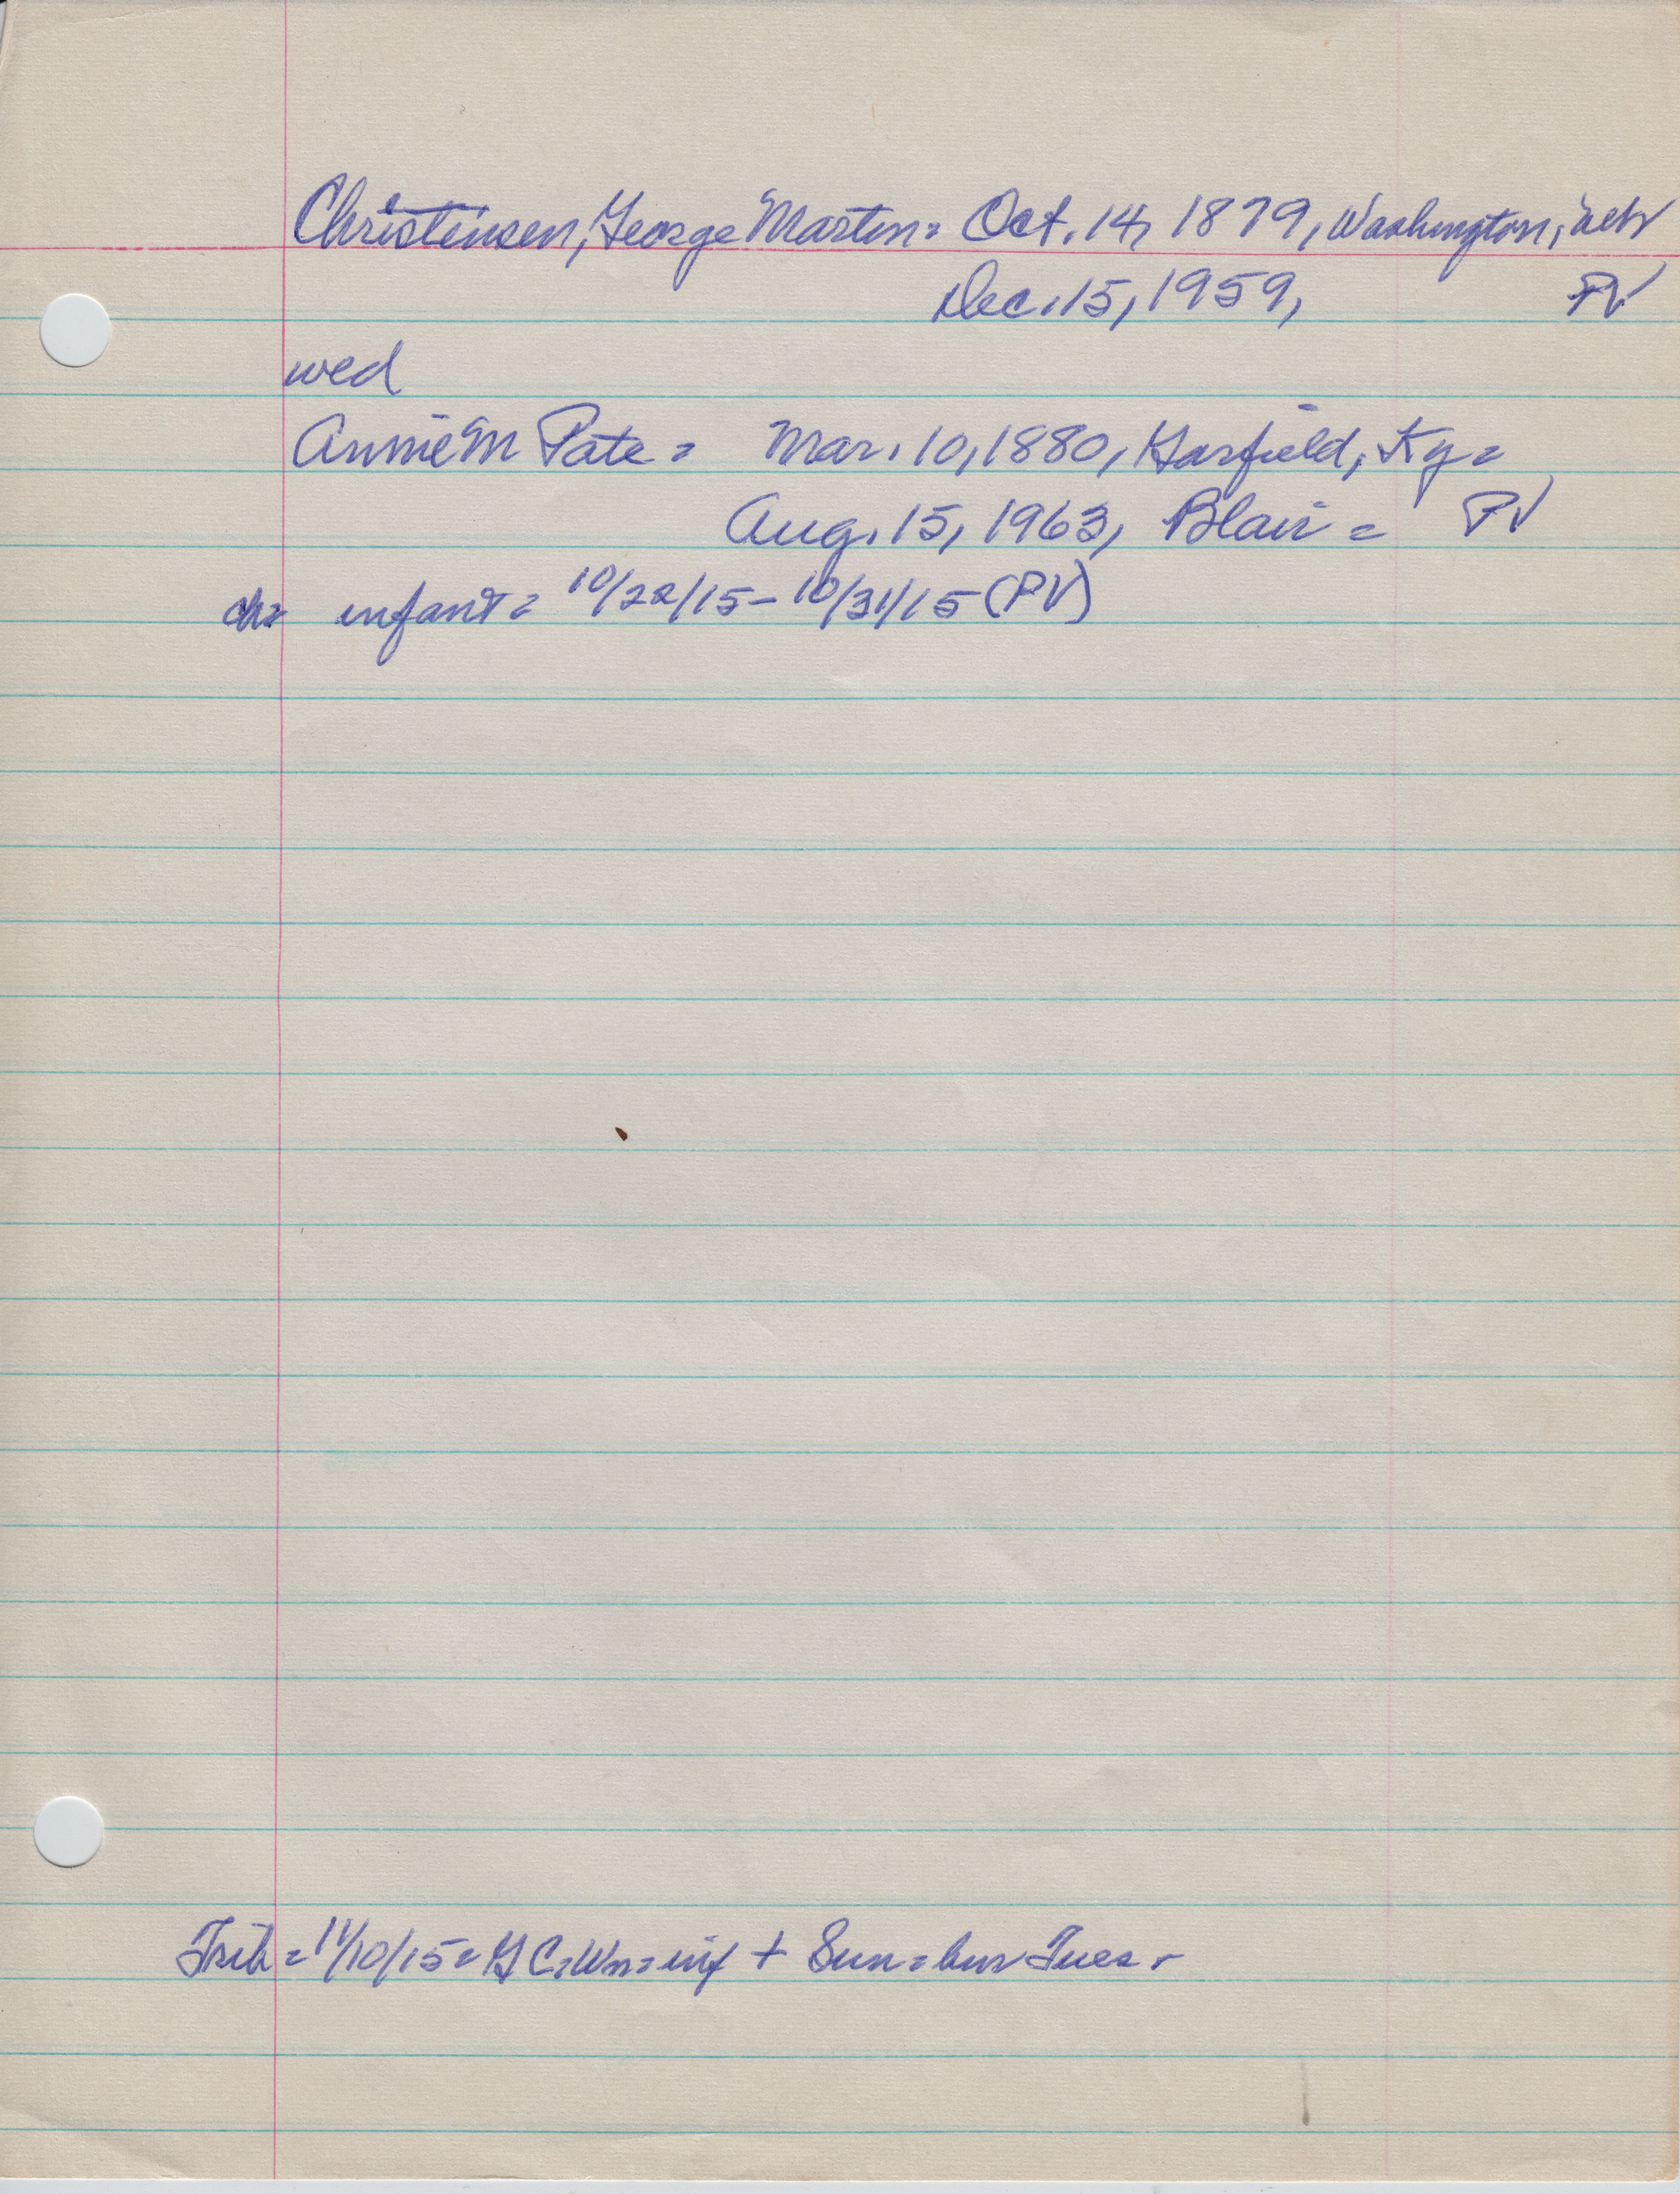 Christensen, George Martin = Oct. 14, 1879, Washington, Neb
Dec. 15, 1959, PV
wed
Annie M Pate = Mar. 10, 1880, Garfield, Ky =
Aug. 15, 1963, Blair = PV
ch = infant = 10/22/15 - 10/31/15 (PV)
Trib = 11/10/15 = G C = Wn = inf + Sun = bur Tues -